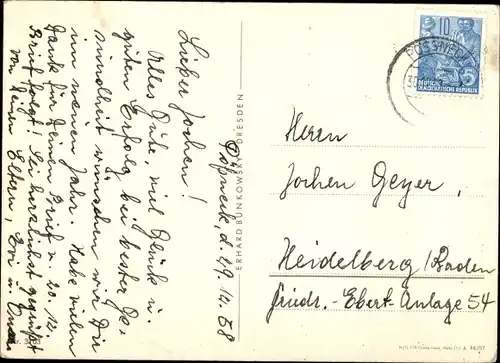 Pößneck, d. 29. 12. 58
Lieber Jochen!
Alles Gute, viel Glück u.
guten Erfolg bei bester Ge-
sundheit wünschen wir Dir
im neuen Jahr. Habe vielen
Dank für Deinen Brief v. 20. 12.
Brief folgt! Sei herzlichst gegrüßt
von Deinen Eltern, Evi u.
ERHARD BUNKOWSKY · DRESDEN
10
DEUTSCHE
DEMOKRATISCHE REPUBLIK
PÖSSNECK
Herrn
Jochen Geyer,
Heidelberg/Baden
Friedr.-Ebert-Anlage 54